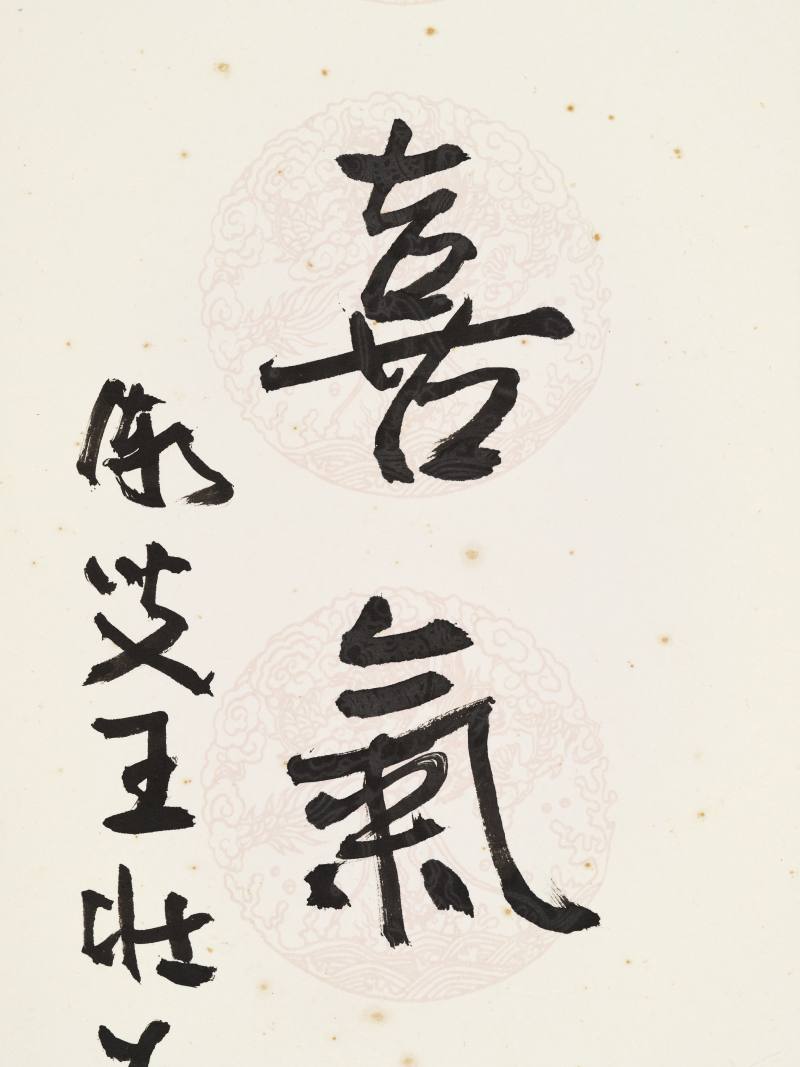 喜氣
艾王壯